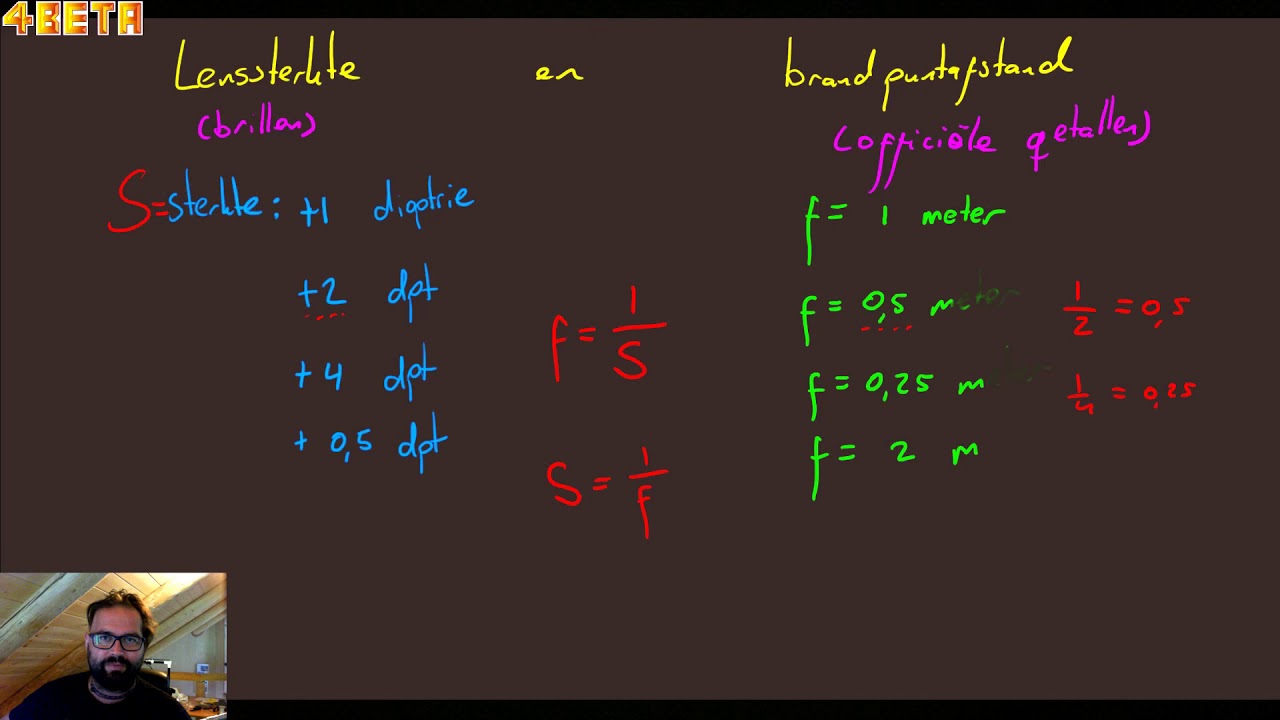 4BETA
Lenssterkte en brandpuntafstand
(brillen) (officiële getallen)
S=sterkte: +1 dioptrie f = 1 meter
+2 dpt f = 0,5 meter 1/2 = 0,5
f = 1/S
+4 dpt f = 0,25 m 1/4 = 0,25
+ 0,5 dpt f = 2 m
S = 1/f